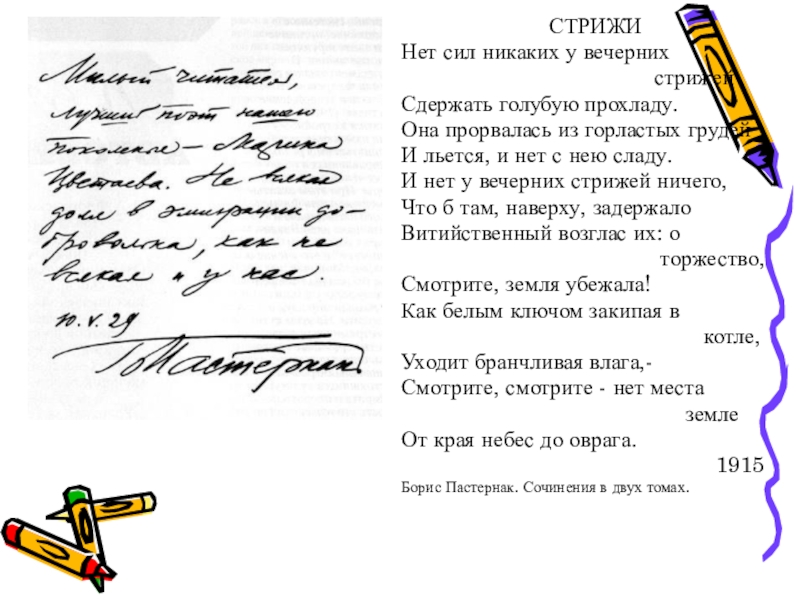 Милый читатель,
лучший поэт нашего
поколенья — Марина
Цветаева. Не всякая
доля в эмиграции до-
бровольна, как не
всякая и у нас.
10.V.29
БПастернак
СТРИЖИ
Нет сил никаких у вечерних
стрижей
Сдержать голубую прохладу.
Она прорвалась из горластых грудей
И льется, и нет с нею сладу.
И нет у вечерних стрижей ничего,
Что б там, наверху, задержало
Витийственный возглас их: о
торжество,
Смотрите, земля убежала!
Как белым ключом закипая в
котле,
Уходит бранчливая влага,-
Смотрите, смотрите - нет места
земле
От края небес до оврага.
1915
Борис Пастернак. Сочинения в двух томах.